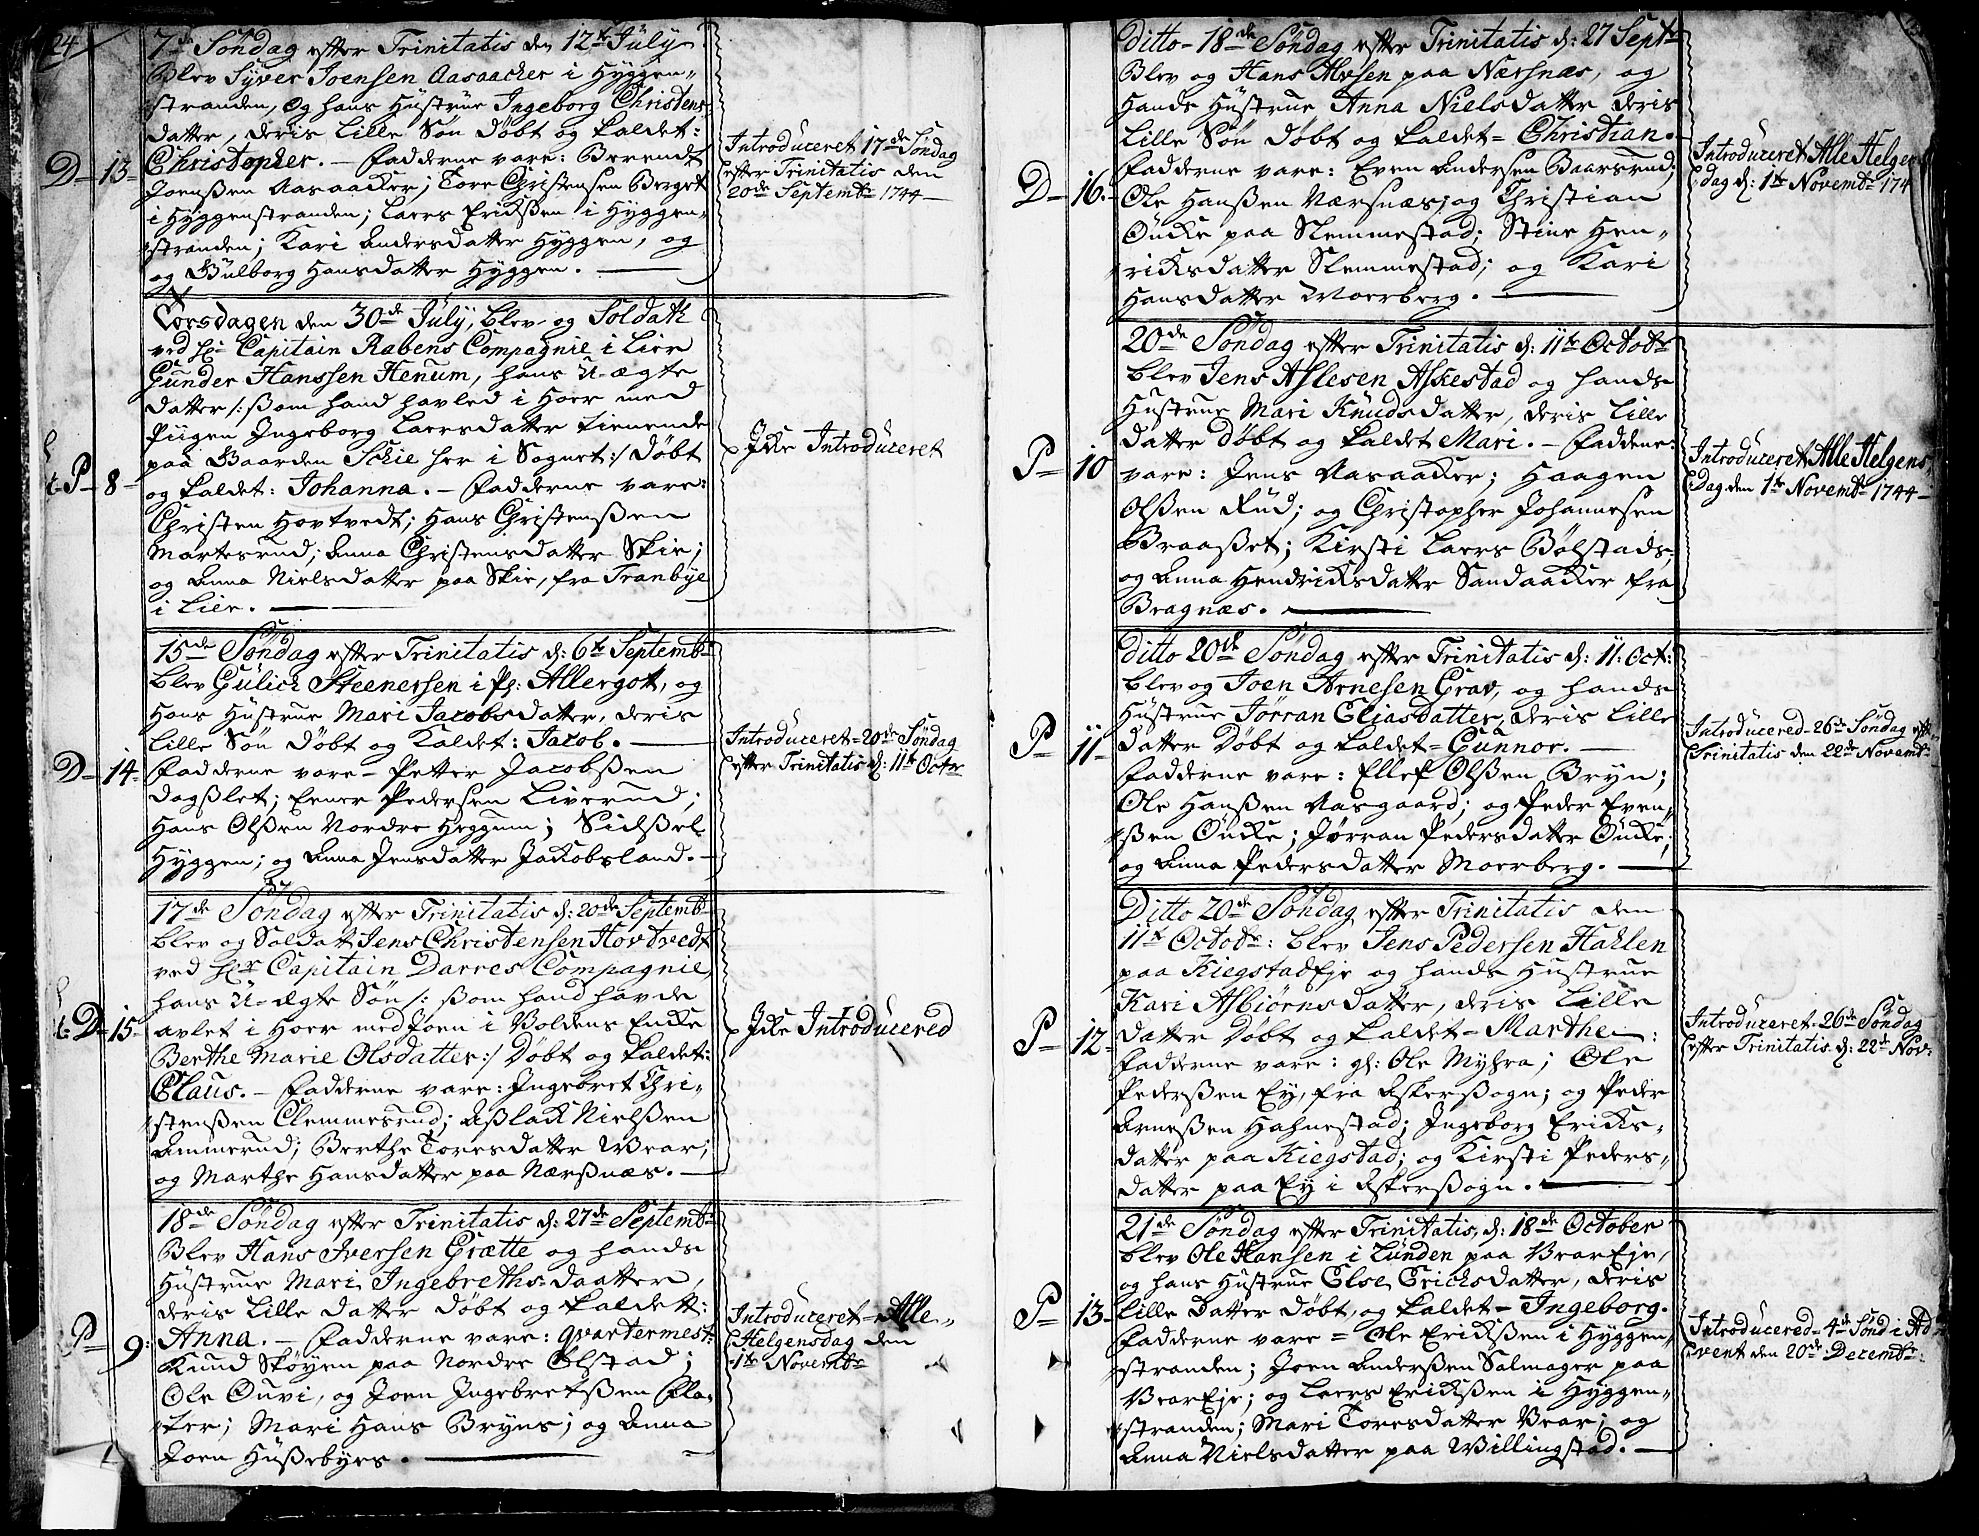 24
7de Söndag efter Trinitatis den 12te July
Blev Syver Joensen Aasaacker i Hyggen-
stranden, og hans Hustrue Ingeborg Christens
datter, deris Lille Søn døbt og kaldet:
D - 13 - Christopher. - Fadderne vare: Berendt
Joensen Aasaacker; Tore Christensen Berget
i Hyggenstranden; Laers Eriksen i Hyggen-
stranden; Kari Andersdatter Hyggen, og
og Gulborg Hansdatter Hyggen.
Introduceret 17de Söndag
efter Trinitatis den
20de Septembr 1744
Torsdagen den 30de July, blev og Soldatt
ved Hr: Capitain Rabens Compagnie i Lier
Gunder Hanssen Henum, hans U-ægte
datter /: som hand havled i Hoer med
Piigen Ingeborg Laersdatter tienende
paa Gaarden Schie her i Sognet :/ døbt
P - 8 - og kaldet: Johanna. - Fadderne vare:
Christen Hovtvedt; Hans Christensen
Martesrud; Anna Christensdatter Skie;
og Anna Nielsdatter paa Skie, fra Tranbye
i Lier.
Icke Introduceret
15de Söndag efter Trinitatis d: 6te Septembr
blev Gulich Steenersen i Pl: Allergott, og
Hans Hustrue Mari Jacobsdatter, deris
Lille Søn døbt og kaldet: Jacob.
D - 14 - Fadderne vare - Petter Jacobsen
Dagslet; Ener Pedersen Liverud;
Hans Olsen Nordre Heggum; Sidsel
Hyggen; og Anna Jensdatter Jakobsland.
Introduceret - 20de Söndag
efter Trinitatis d: 11te Octbr
17de Söndag efter Trinitatis d: 20de Septembr
blev og Soldatt Jens Christensen Hovtvedt
ved Hr Capitain Darres Compagnie,
hans U-ægte Søn /: som hand havde
D - 15 - avlet i Hoer med Joen i Boldens Encke
Berthe Marie Olsdatter :/ Døbt og kaldet:
Claus. - Fadderne vare: Ingebret Chri-
stensen Clemmesrud; Aslack Nielsen
Ammerud; Berthe Toresdatter Wear;
og Marthe Hansdatter paa Nærsnæs.
Icke Introducered
18de Söndag efter Trinitatis d: 27de Septembr
Blev Hans Iversen Grætte og hands
Hustrue Mari Ingebrethsdaatter,
deris Lille datter døbt og kaldett:
P - 9: Anna. - Fadderne vare: qvartermest:
Knud Skøyen paa Nordre Ølstad;
Ole Ouvi, og Joen Ingebretsen Fla-
ker; Mari Hans Bryns; og Anna
Joen Husebyes.
Introduceret - Alle-
Helgensdag den
1te Novembr
Ditto - 18de Söndag efter Trinitatis d: 27 Septbr
Blev og Hans Alvsen paa Nærsnæs, og
Hands Hustrue Anna Nielsdatter deris
Lille Søn døbt og kaldet = Christian.
Fadderne vare: Even Andersen Baarsrud;
D - 16. - Ole Hansen Nærsnæs; og Christian
Öucke paa Slemmestad; Stine Hen-
richsdatter Slemmestad; og Kari
Hansdatter Moerberg.
Introduceret Alle Helgens
dag d: 1te Novembr 174
20de Söndag efter Trinitatis d: 11te Octobr
blev Jens Aslesen Askestad og hands
Hustrue Mari Knudsdatter, deris Lille
datter døbt og kaldet Mari. - Faddene:
P - 10 vare: Jens Aasaacker; Haagen
Olsen Rud; og Christopher Johannesen
Braaset; Kirsti Laers Bølstads;
og Anna Hendrichsdatter Sandaacker fra
Bragnæs.
Introduceret Alle Helgens
Dag den 1te Novembr 1744
Ditto 20de Söndag efter Trinitatis d: 11: Oct:
blev og Joen Arnesen Grav, og hands
Hustrue Jörran Eliasdatter, deris Lille
P - 11 - datter Døbt og kaldet = Gunnor.
Fadderne vare: Ellef Olsen Bryn;
Ole Hansen Aasgaard; og Peder Even-
sen Öucke; Jørran Pedersdatter Öucke;
og Anna Pedersdatter Moerberg.
Introducered - 26de Söndag eft-
Trinitatis den 22de Novembr
Ditto 20de Söndag efter Trinitatis den
11te Octobr: blev Jens Pedersen Hahlen
paa Kiegstad Eje og hands Hustrue
Kari Asbiørnsdatter, deris Lille
P - 12 - datter Døbt og kaldet = Marthe:
Fadderne vare: gl: Ole Myhra; Ole
Pedersen Ey, fra Askersogn; og Peder
Arnesen Hahnestad; Ingeborg Ericks-
datter paa Kiegstad; og Kirsti Peders-
datter paa Ey i Askersogn.
Introduceret - 26de Söndag
efter Trinitatis d: 22de Nov:
21de Söndag efter Trinitatis, d: 18de October
blev Ole Hansen i Lunden paa Wear Eje,
og hans Hustrue Else Erichsdatter, deris
P - 13 - Lille Datter Døbt, og kaldet = Ingeborg.
Fadderne vare = Ole Ericksen i Hyggen-
stranden; Joen Andersen Salmager paa
Wear Eje; og Laers Ericksen i Hyggen-
stranden; Mari Toresdatter Wear; og
Anna Nielsdatter paa Willingstad.
Introducered - 4de Sönd i Ad
vent den 20de Decembr: